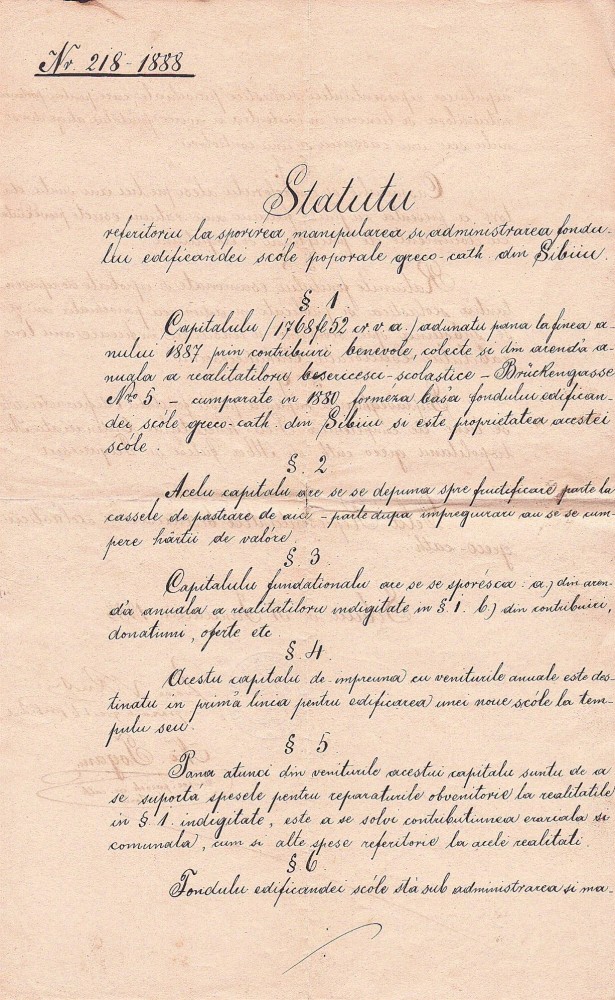 Nr. 218-1888
Statutu
referitoriu la sporirea, manipularea si administrarea fondu-
lui edificandei scóle poporale greco-cath. din Sibiiu.
§. 1.
Capitalulu /1768 fl 52 cr. v. a./ adunatu pana la finea a-
nului 1887 prin contribuiri benevole, colecte si din arend'a a-
nuala a realitatiloru besericesci-scolastice - Brückengasse
Nro 5. - cumparate in 1880 formeza basa fondului edifican-
dei scóle greco-cath. din Sibiiu si este proprietatea acestei
scóle.
§. 2
Acelu capitalu are se se depuna spre fructificare parte la
cassele de pastrare de aici - parte dupa impregiurari au se se cum-
pere hârtii de valóre.
§. 3
Capitalulu fundationalu are se se sporésca: a) din aren-
d'a anuala a realitatiloru indigitate in §. 1. b) din contribuiri,
donatiuni, oferte etc.
§. 4.
Acestu capitalu de-impreuna cu veniturile anuale este des-
tinatu in prim'a linia pentru edificarea unei noue scóle la tem-
pulu seu.
§ 5.
Pana atunci din veniturile acestui capitalu suntu de a
se suportá spesele pentru reparaturile obvenitorie la realitatile
in §. 1. indigitate, este a se solvi contributiunea erariala si
comunala, cum si alte spese referitorie la acele realitati.
§. 6.
Fondulu edificandei scóle stá sub administrarea si ma-